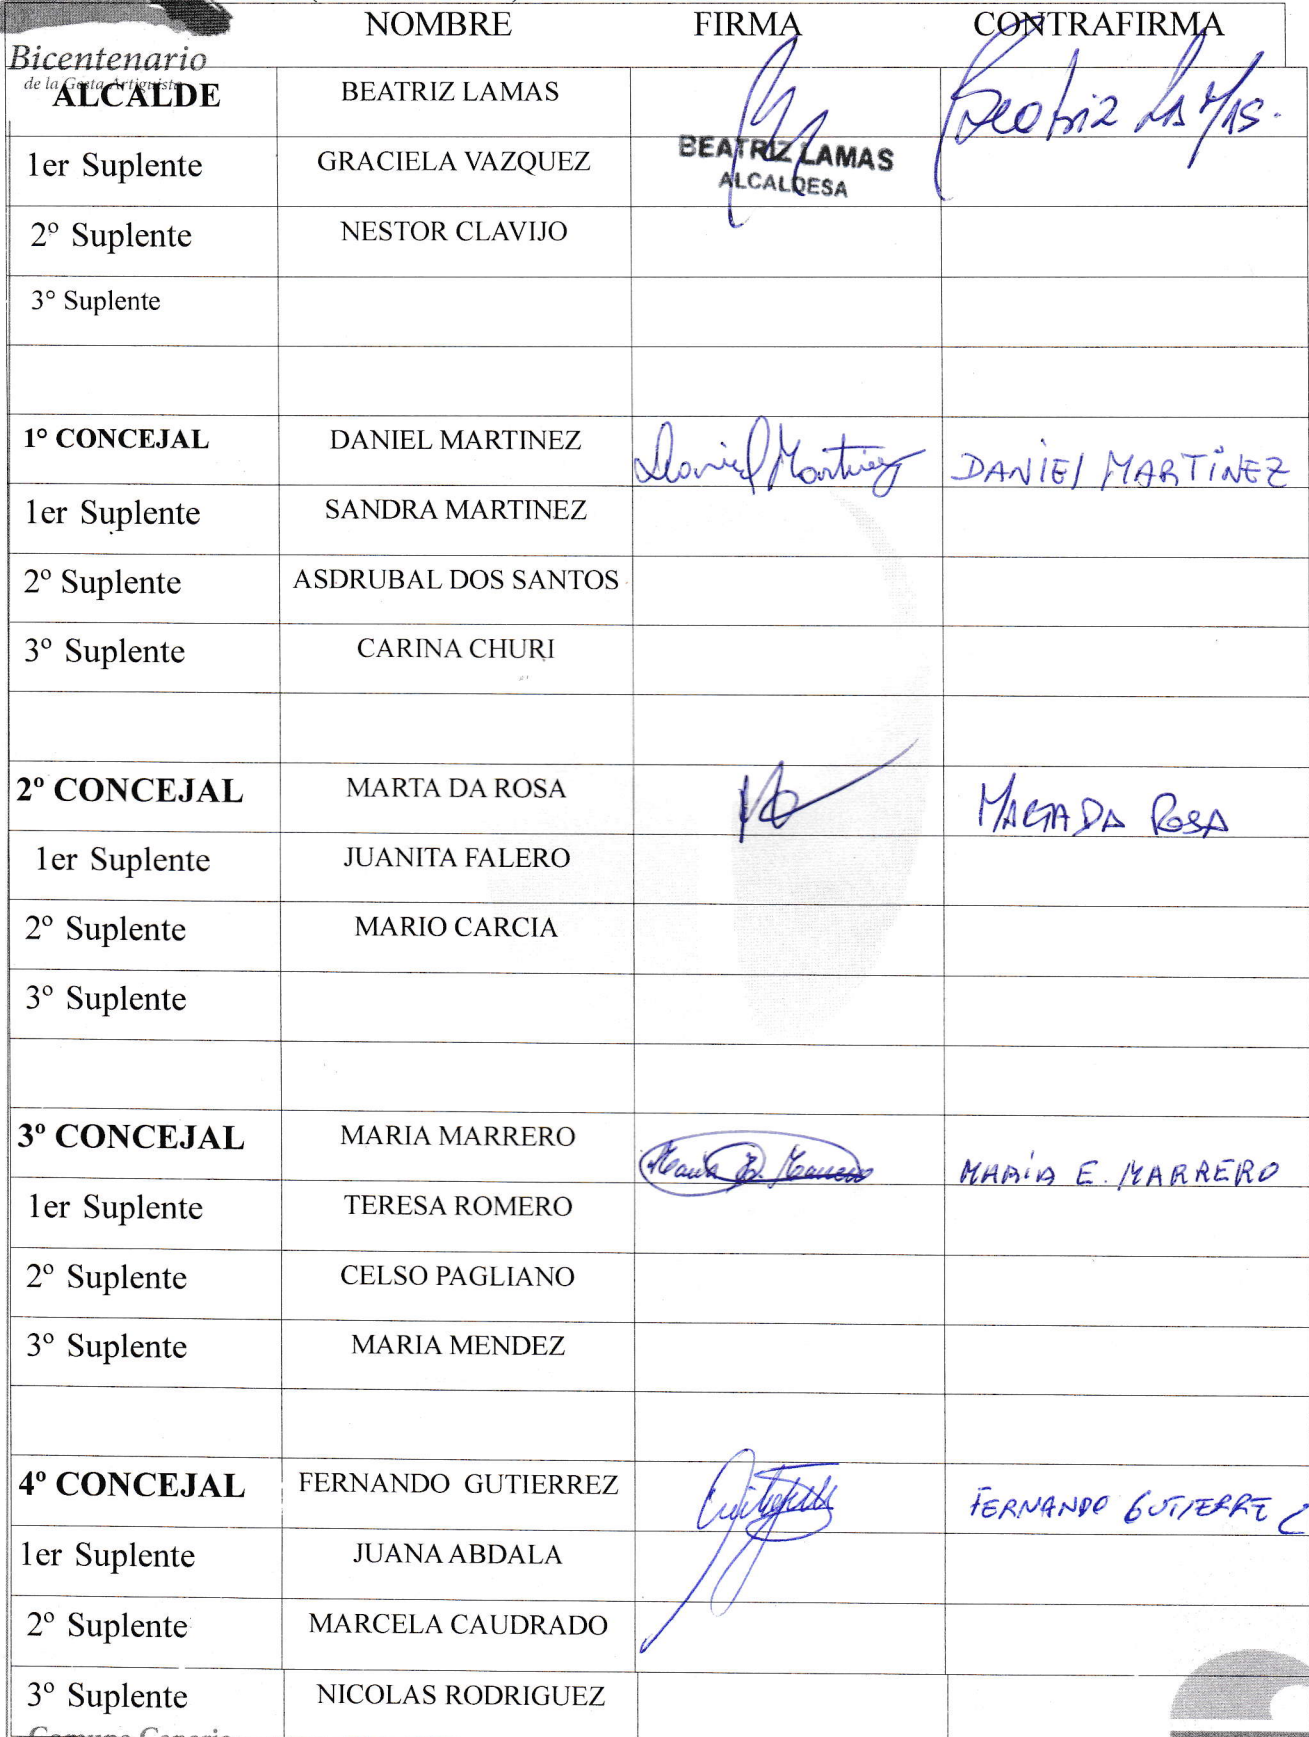 NOMBRE FIRMA CONTRAFIRMA
Bicentenario
de la Gesta Artiguista
ALCALDE BEATRIZ LAMAS Beatriz Lamas.
BEATRIZ LAMAS
ALCALDESA
1er Suplente GRACIELA VAZQUEZ
2º Suplente NESTOR CLAVIJO
3° Suplente
1° CONCEJAL DANIEL MARTINEZ Daniel Martinez DANIEL MARTÍNEZ
1er Suplente SANDRA MARTINEZ
2º Suplente ASDRUBAL DOS SANTOS
3º Suplente CARINA CHURI
2º CONCEJAL MARTA DA ROSA MARTA DA ROSA
1er Suplente JUANITA FALERO
2º Suplente MARIO CARCIA
3º Suplente
3º CONCEJAL MARIA MARRERO Maria E. Marrero MARÍA E. MARRERO
1er Suplente TERESA ROMERO
2º Suplente CELSO PAGLIANO
3º Suplente MARIA MENDEZ
4º CONCEJAL FERNANDO GUTIERREZ FERNANDO GUTIERREZ
1er Suplente JUANA ABDALA
2º Suplente MARCELA CAUDRADO
3º Suplente NICOLAS RODRIGUEZ